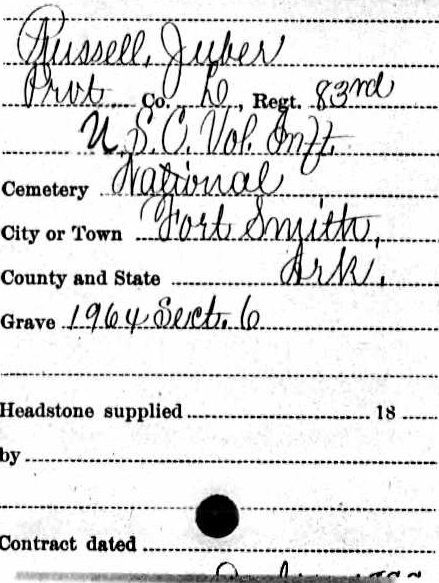 Russell, Juber
Prvt. Co. D, Regt. 83rd
U.S.C. Vol. Inft.
Cemetery National
City or Town Fort Smith,
County and State Ark.
Grave 1964 Sect. 6
Headstone supplied 18
by
Contract dated